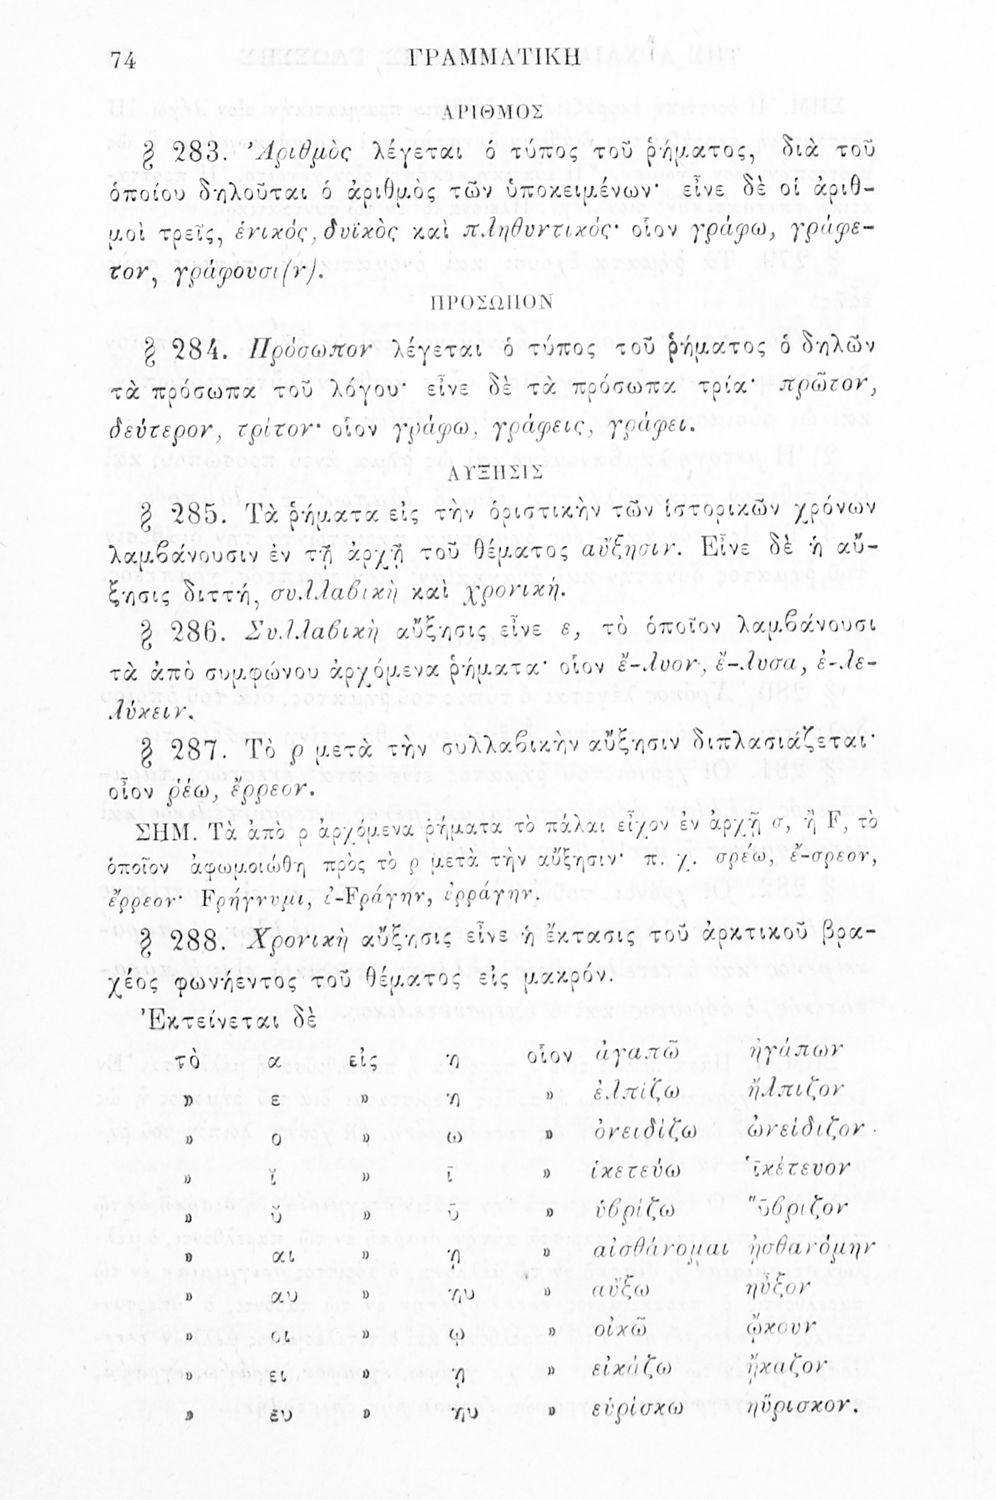 74 ΓΡΑΜΜΑΤΙΚΗ
ΑΡΙΘΜΟΣ
§ 283. Ἀριθμὸς λέγεται ὁ τύπος τοῦ ῥήματος, διὰ τοῦ
ὁποίου δηλοῦται ὁ ἀριθμὸς τῶν ὑποκειμένων· εἶνε δὲ οἱ ἀριθ-
μοὶ τρεῖς, ἑνικός, δυϊκὸς καὶ πληθυντικός· οἷον γράφω, γράφε-
τον, γράφουσι(ν).
ΠΡΟΣΩΠΟΝ
§ 284. Πρόσωπον λέγεται ὁ τύπος τοῦ ῥήματος ὁ δηλῶν
τὰ πρόσωπα τοῦ λόγου· εἶνε δὲ τὰ πρόσωπα τρία· πρῶτον,
δεύτερον, τρίτον· οἷον γράφω, γράφεις, γράφει.
ΑΥΞΗΣΙΣ
§ 285. Τὰ ῥήματα εἰς τὴν ὁριστικὴν τῶν ἱστορικῶν χρόνων
λαμβάνουσιν ἐν τῇ ἀρχῇ τοῦ θέματος αὔξησιν. Εἶνε δὲ ἡ αὔ-
ξησις διττή, συλλαβικὴ καὶ χρονική.
§ 286. Συλλαβικὴ αὔξησις εἶνε ε, τὸ ὁποῖον λαμβάνουσι
τὰ ἀπὸ συμφώνου ἀρχόμενα ῥήματα· οἷον ἔ-λυον, ἔ-λυσα, ἐ-λε-
λύκειν.
§ 287. Τὸ ρ μετὰ τὴν συλλαβικὴν αὔξησιν διπλασιάζεται·
οἷον ῥέω, ἔρρεον.
ΣΗΜ. Τὰ ἀπὸ ρ ἀρχόμενα ῥήματα τὸ πάλαι εἶχον ἐν ἀρχῇ σ, ἢ F, τὸ
ὁποῖον ἀφωμοιώθη πρὸς τὸ ρ μετὰ τὴν αὔξησιν· π. χ. σρέω, ἔ-σρεον,
ἔρρεον· Fρήγνυμι, ἐ-Fράγην, ἐρράγην.
§ 288. Χρονικὴ αὔξησις εἶνε ἡ ἔκτασις τοῦ ἀρκτικοῦ βρα-
χέος φωνήεντος τοῦ θέματος εἰς μακρόν.
Ἐκτείνεται δὲ
τὸ α εἰς η οἷον ἀγαπῶ ἠγάπων
» ε » η » ἐλπίζω ἤλπιζον
» ο » ω » ὀνειδίζω ὠνείδιζον
» ῐ » ῑ » ἱκετεύω ἱ̄κέτευον
» ῠ » ῡ » ὑβρίζω ὕ̄βριζον
» αι » ῃ » αἰσθάνομαι ᾐσθανόμην
» αυ » ηυ » αὔξω ηὖξον
» οι » ῳ » οἰκῶ ᾤκουν
» ει » ῃ » εἰκάζω ᾔκαζον
» ευ » ηυ » εὑρίσκω ηὕρισκον.